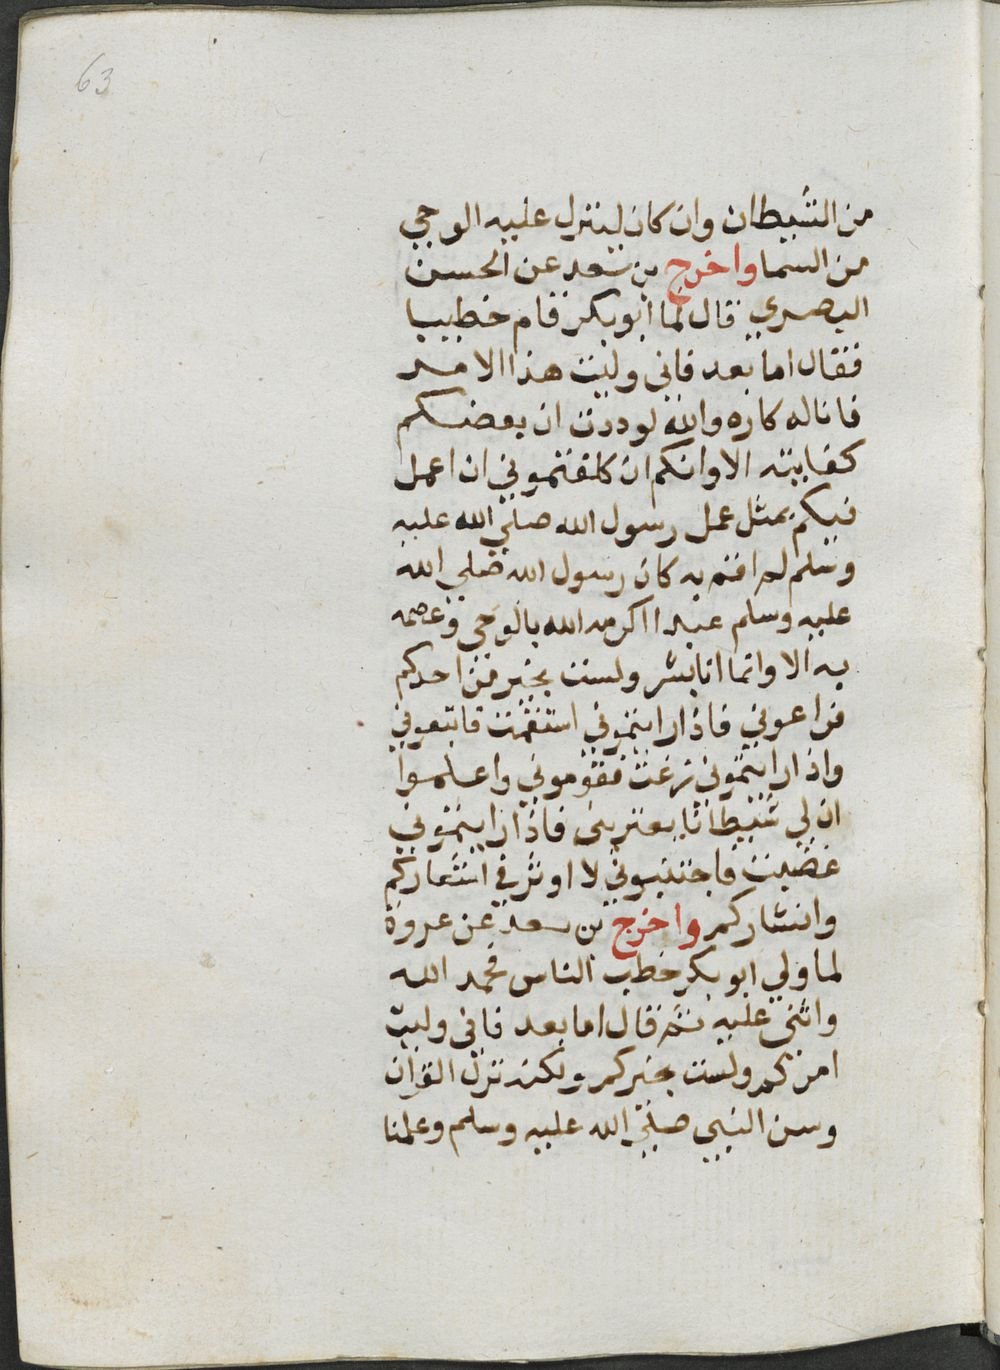 63
من الشيطان وان كان لينزل عليه الوحي
من السما واخرج بن سعد عن الحسن
البصري قال لما ابو بكر قام خطيبا
فقال اما بعد فاني وليت هذا الامر
فانا له كاره والله لوددت ان بعضكم
كفانيه الا وانكم ان كلفتموني ان اعمل
فيكم بمثل عمل رسول الله صلي الله عليه
وسلم لم اقم به كان رسول الله صلي الله
عليه وسلم عبدا اكرمه الله بالوحي وعصمه
به الا وانما انا بشر ولست بخير من احدكم
فراعوني فاذا رايتموني استقمت فاتبعوني
واذا رايتموني زغت فقوموني واعلموا
ان لي شيطانا يعتريني فاذا رايتموني
غضبت فاجتنبوني لا اوثر في اشعاركم
وابشاركم واخرج بن سعد عن عروة
لما ولي ابو بكر خطب الناس فحمد الله
واثني عليه ثم قال اما بعد فاني وليت
امركم ولست بخيركم ولكنه نزل القران
وسن النبي صلي الله عليه وسلم وعلمنا